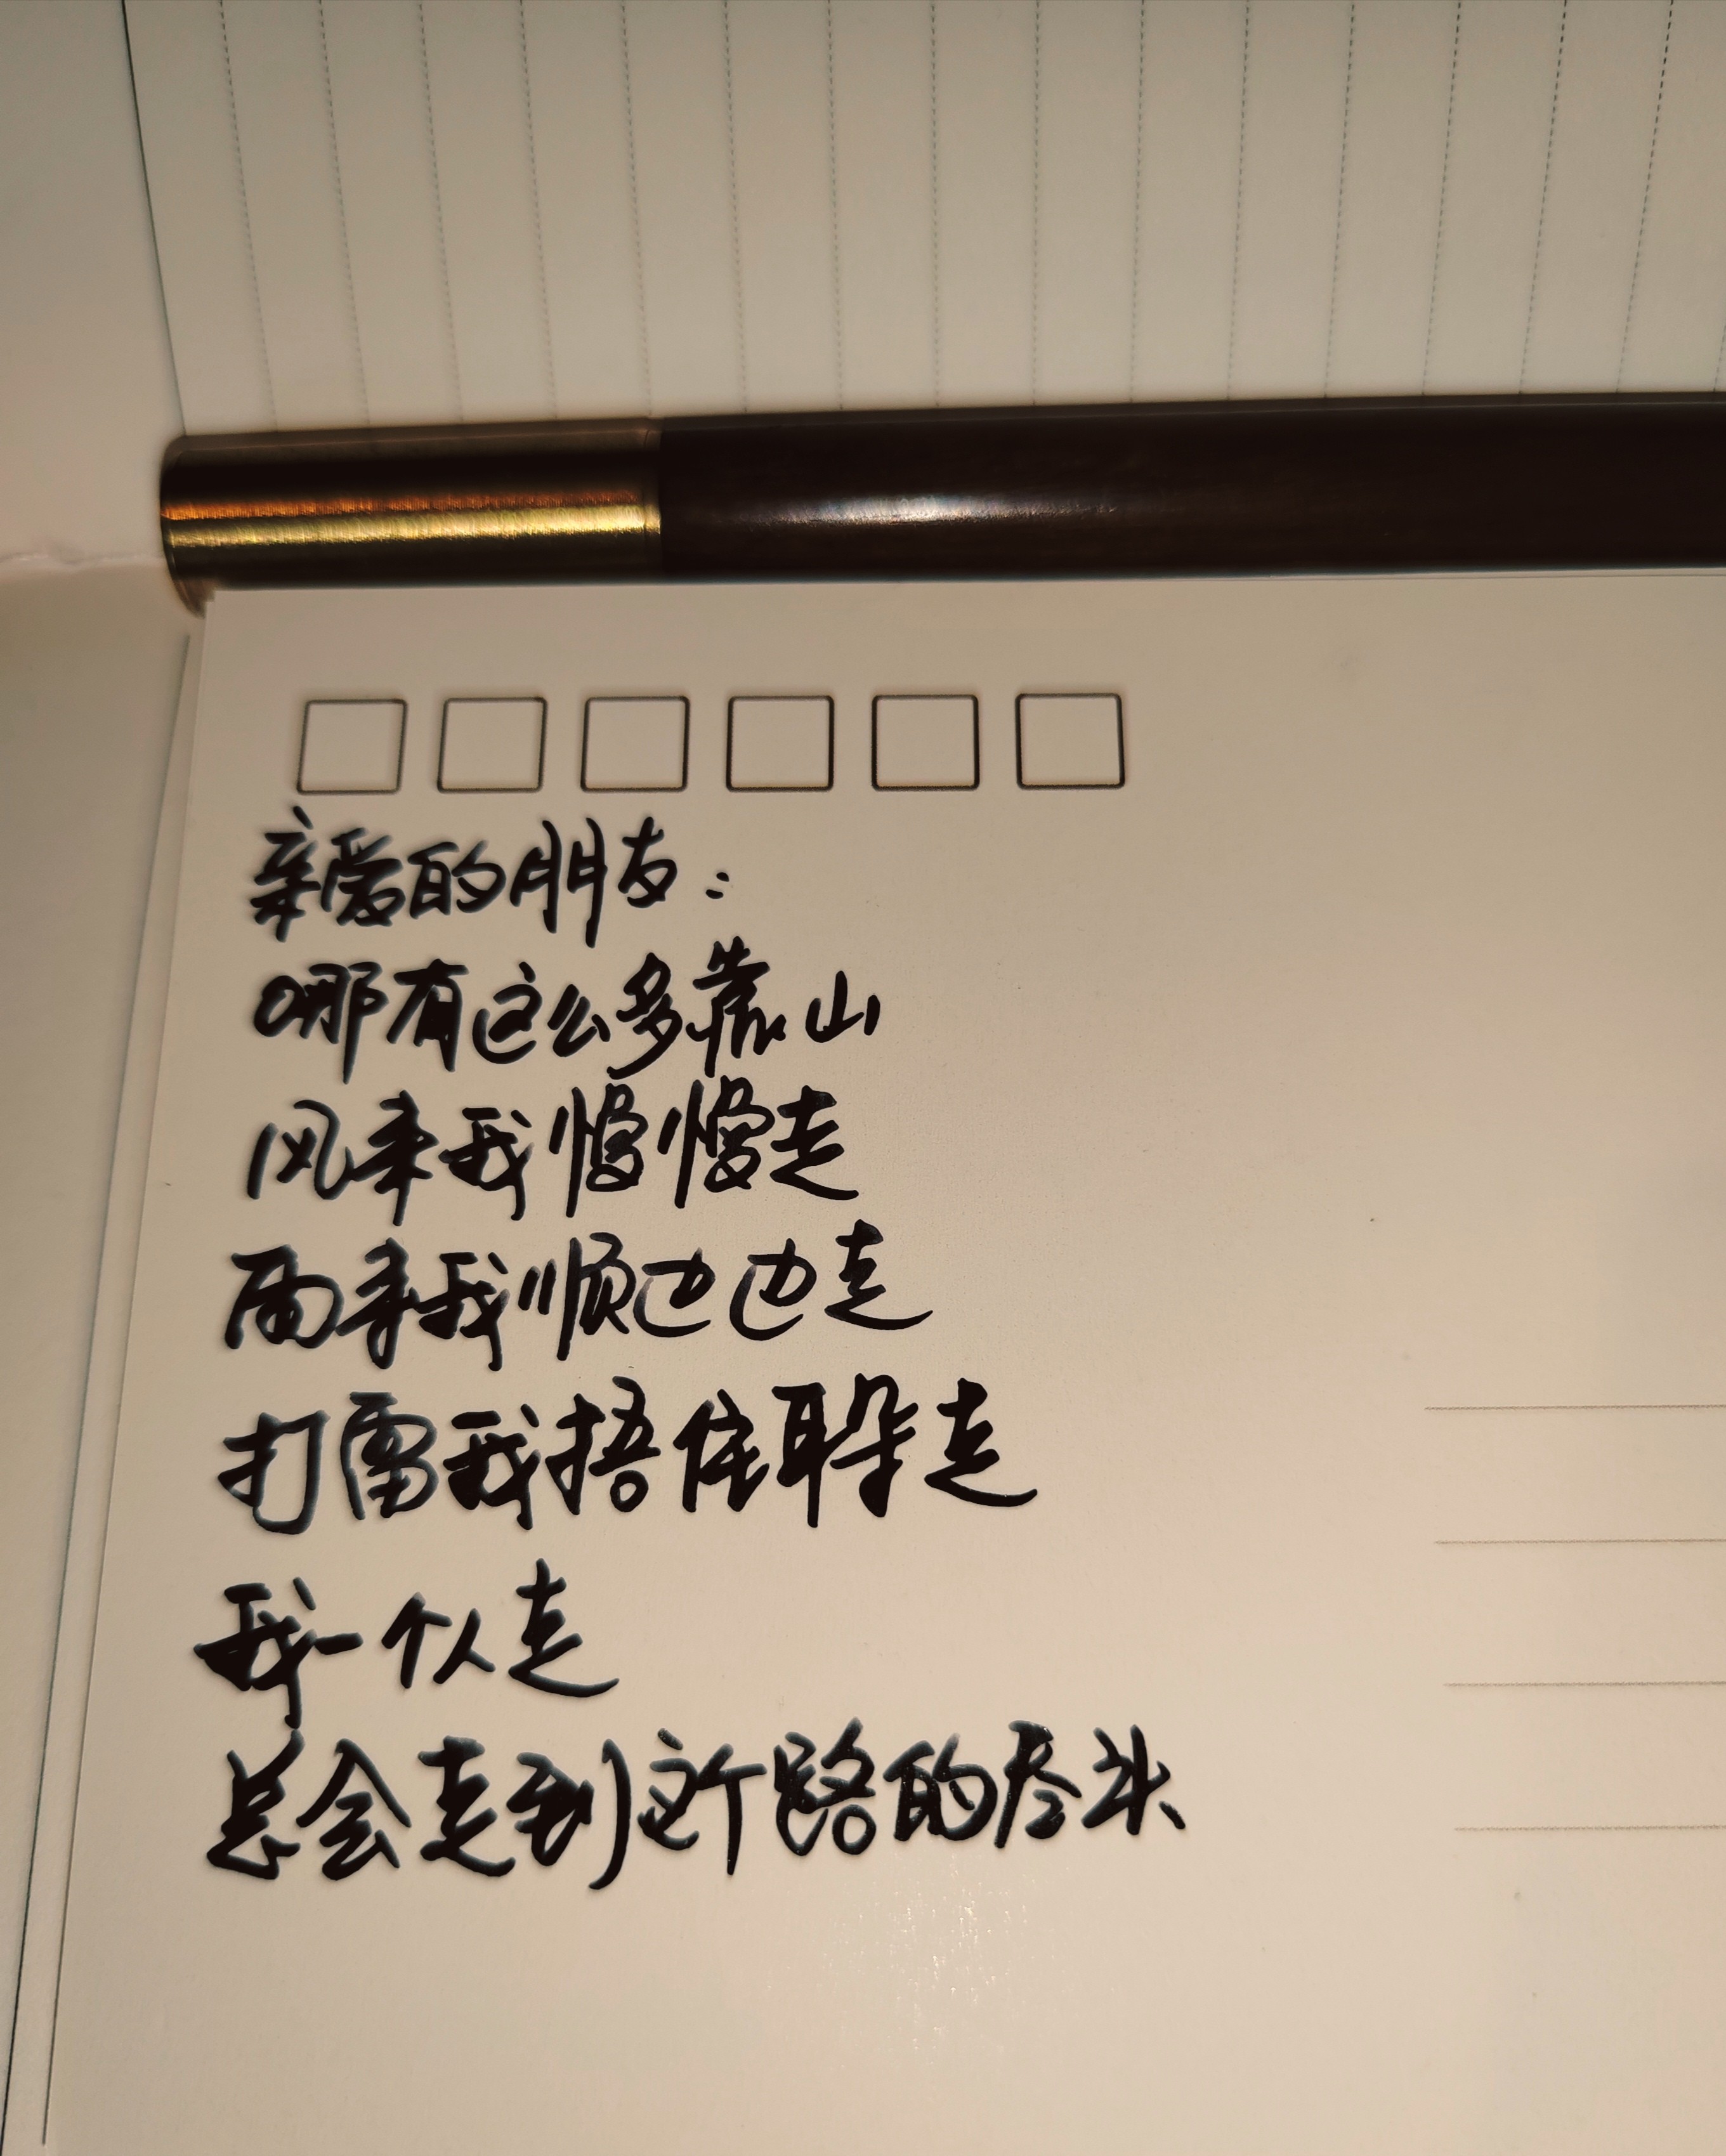 亲爱的朋友：
哪有这么多靠山
风来我慢慢走
雨来我顺边边走
打雷我捂住耳朵走
我一个人走
总会走到这个路的尽头